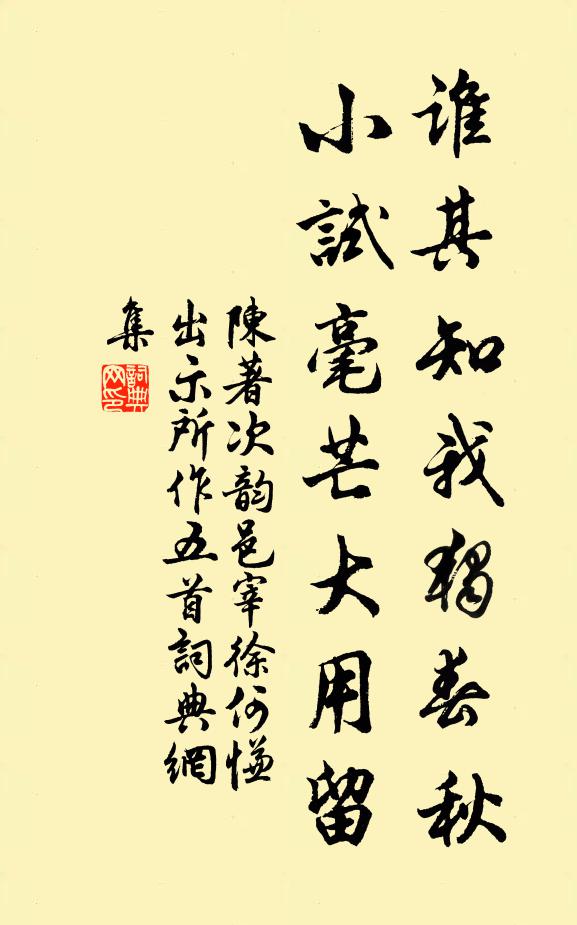 誰其知我獨春秋
小試毫芒大用留
陳著次韵邑宰徐何慊
出示所作五首詞典網
集
詞典网印